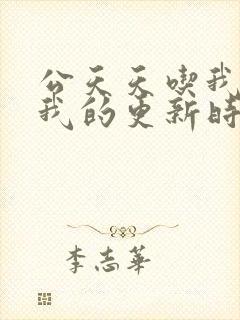 公天天喫我
我的更新時
李志華